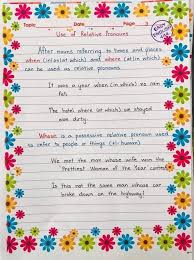 Topic Date Page 3
Use of Relative Pronouns
After nouns referring to times and places
when (in/on/at which) and where (at/in which)
can be used as relative pronouns.
It was a year when (in which) no rain
fell.
The hotel where (at which) we stayed
was dirty.
Whose is a possessive relative pronoun used
to refer to people or things (+ human)
We met the man whose wife won the
Prettiest Woman of the Year contest
Is this not the same man whose car
broke down on the highway?